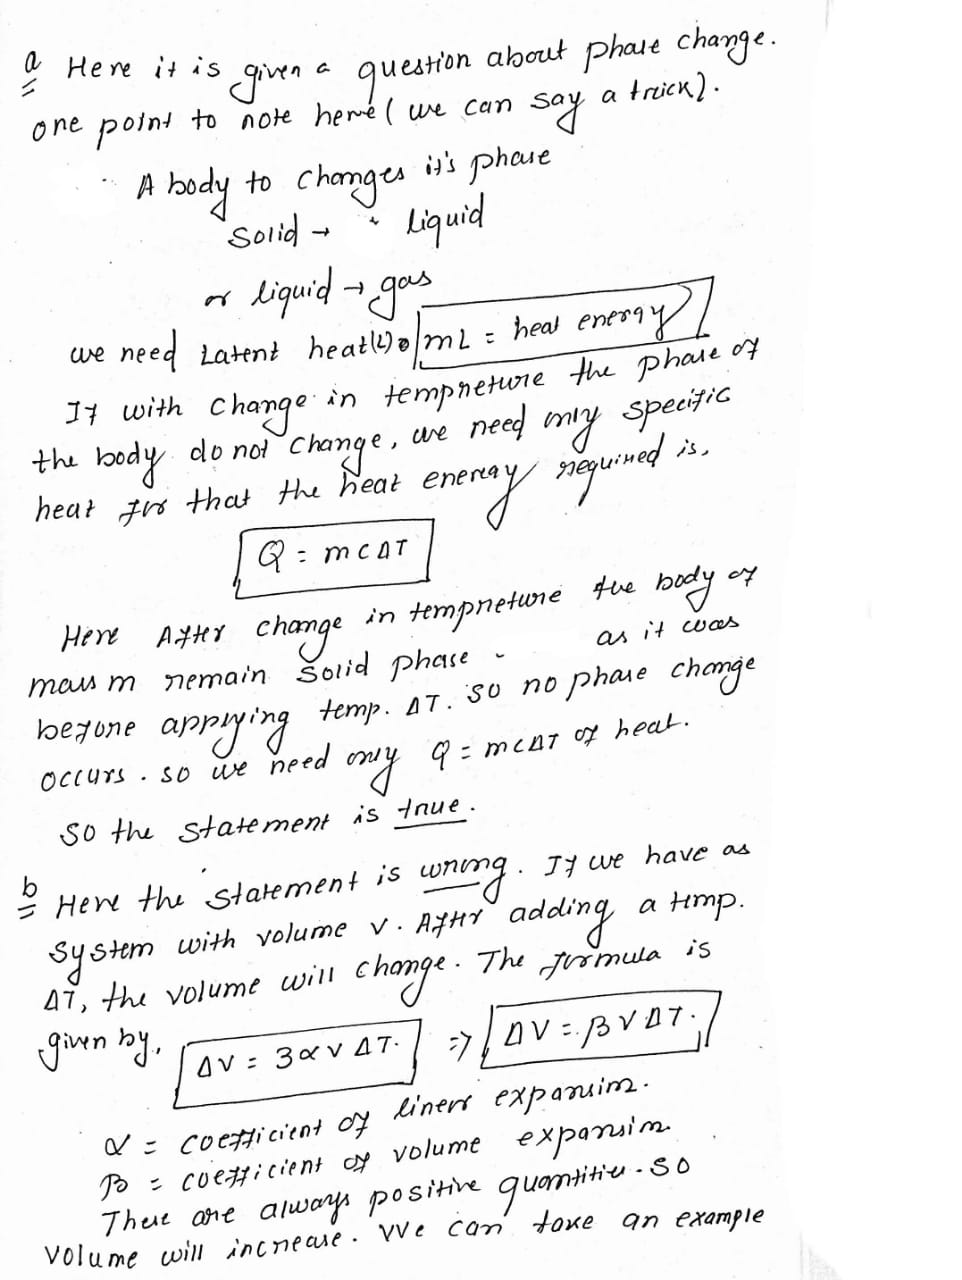 a Here it is given a question about phase change.
one point to note here ( we can say a trick).
A body to changes it's phase
Solid → liquid
or liquid → gas
we need Latent heat(L) mL = heat energy
If with change in tempreture the phase of
the body do not change, we need only specific
heat for that the heat energy required is,
Q = mcΔT
Here After change in tempreture the body of
mass m remain solid phase as it was
before applying temp. ΔT. So no phase change
occurs. so we need only Q = mcΔT of heat.
So the statement is true.
b Here the statement is wrong. If we have as
system with volume v. After adding a temp.
ΔT, the volume will change. The formula is
given by, ΔV = 3αVΔT. => ΔV = βVΔT.
α = coefficient of liner expansion.
β = coefficient of volume expansion
These are always positive quantities. So
volume will increase. We can take an example